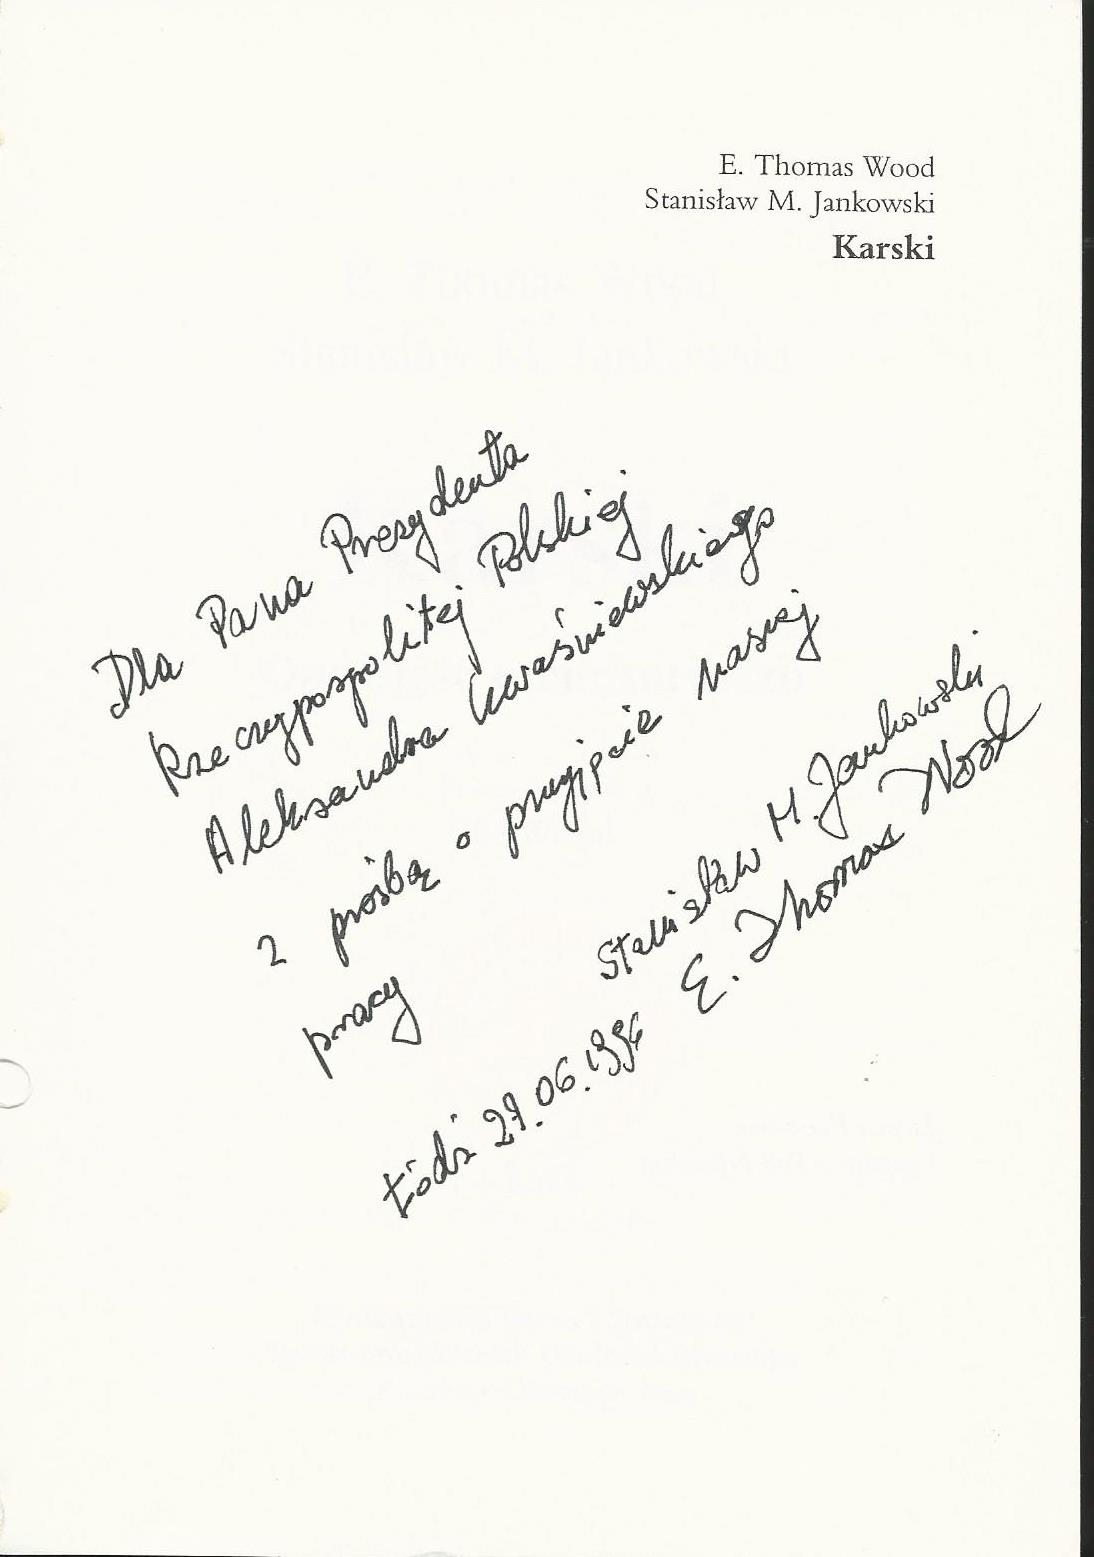 E. Thomas Wood
Stanisław M. Jankowski
Karski
Dla Pana Prezydenta
Rzeczypospolitej Polskiej
Aleksandra Kwaśniewskiego
z prośbą o przyjęcie naszej
pracy
Stanisław M. Jankowski
E. Thomas Wood
Łódź 27.06.1996